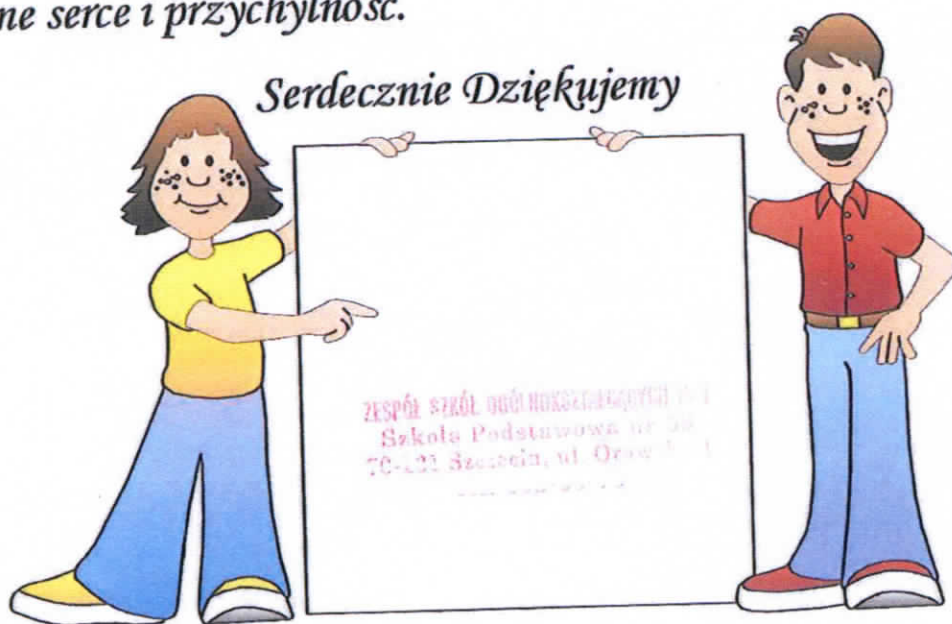 ne serce i przychylność.
Serdecznie Dziękujemy
ZESPÓŁ SZKÓŁ OGÓLNOKSZTAŁCĄCYCH
Szkoła Podstawowa nr
Szczecin, ul.